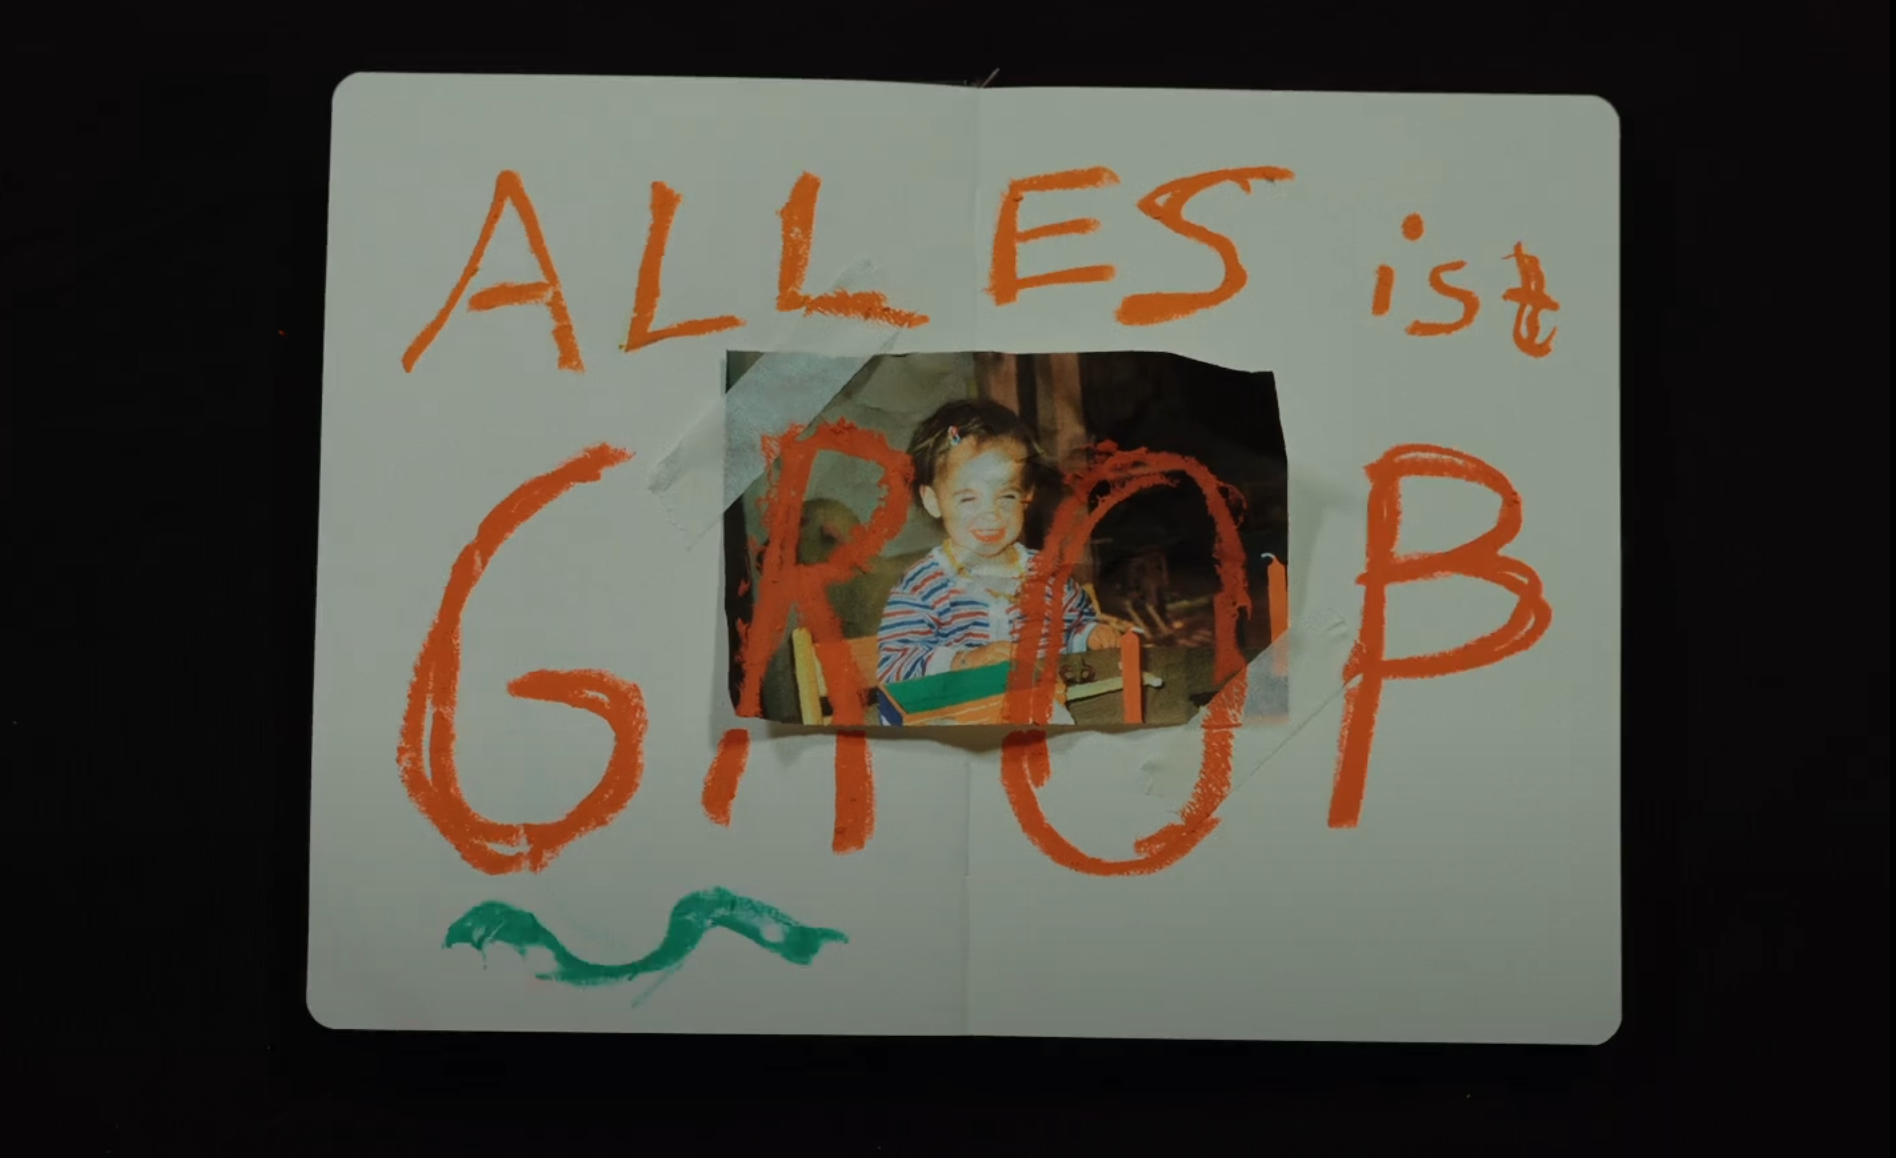 ALLES ist
GROß